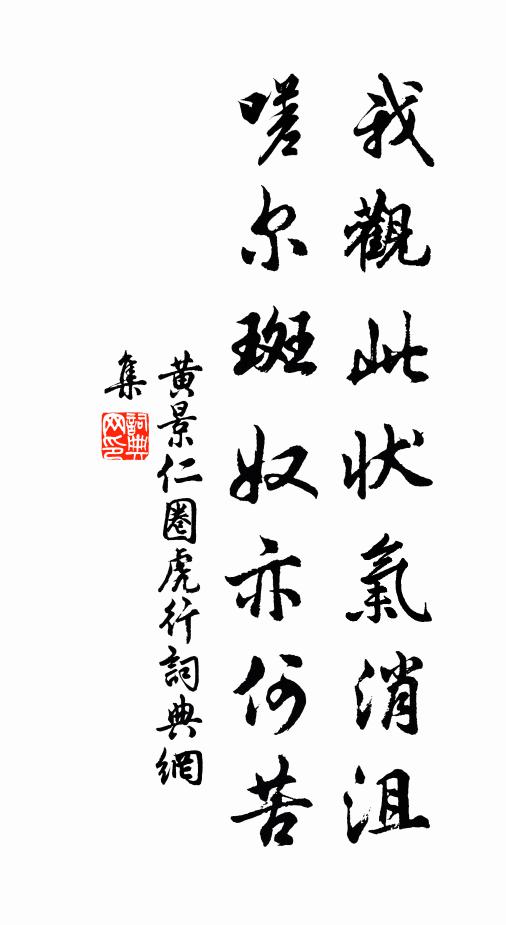 我觀此状氣消沮
嗟尔斑奴亦何苦
黄景仁圈虎行詞典網
集
詞典网印